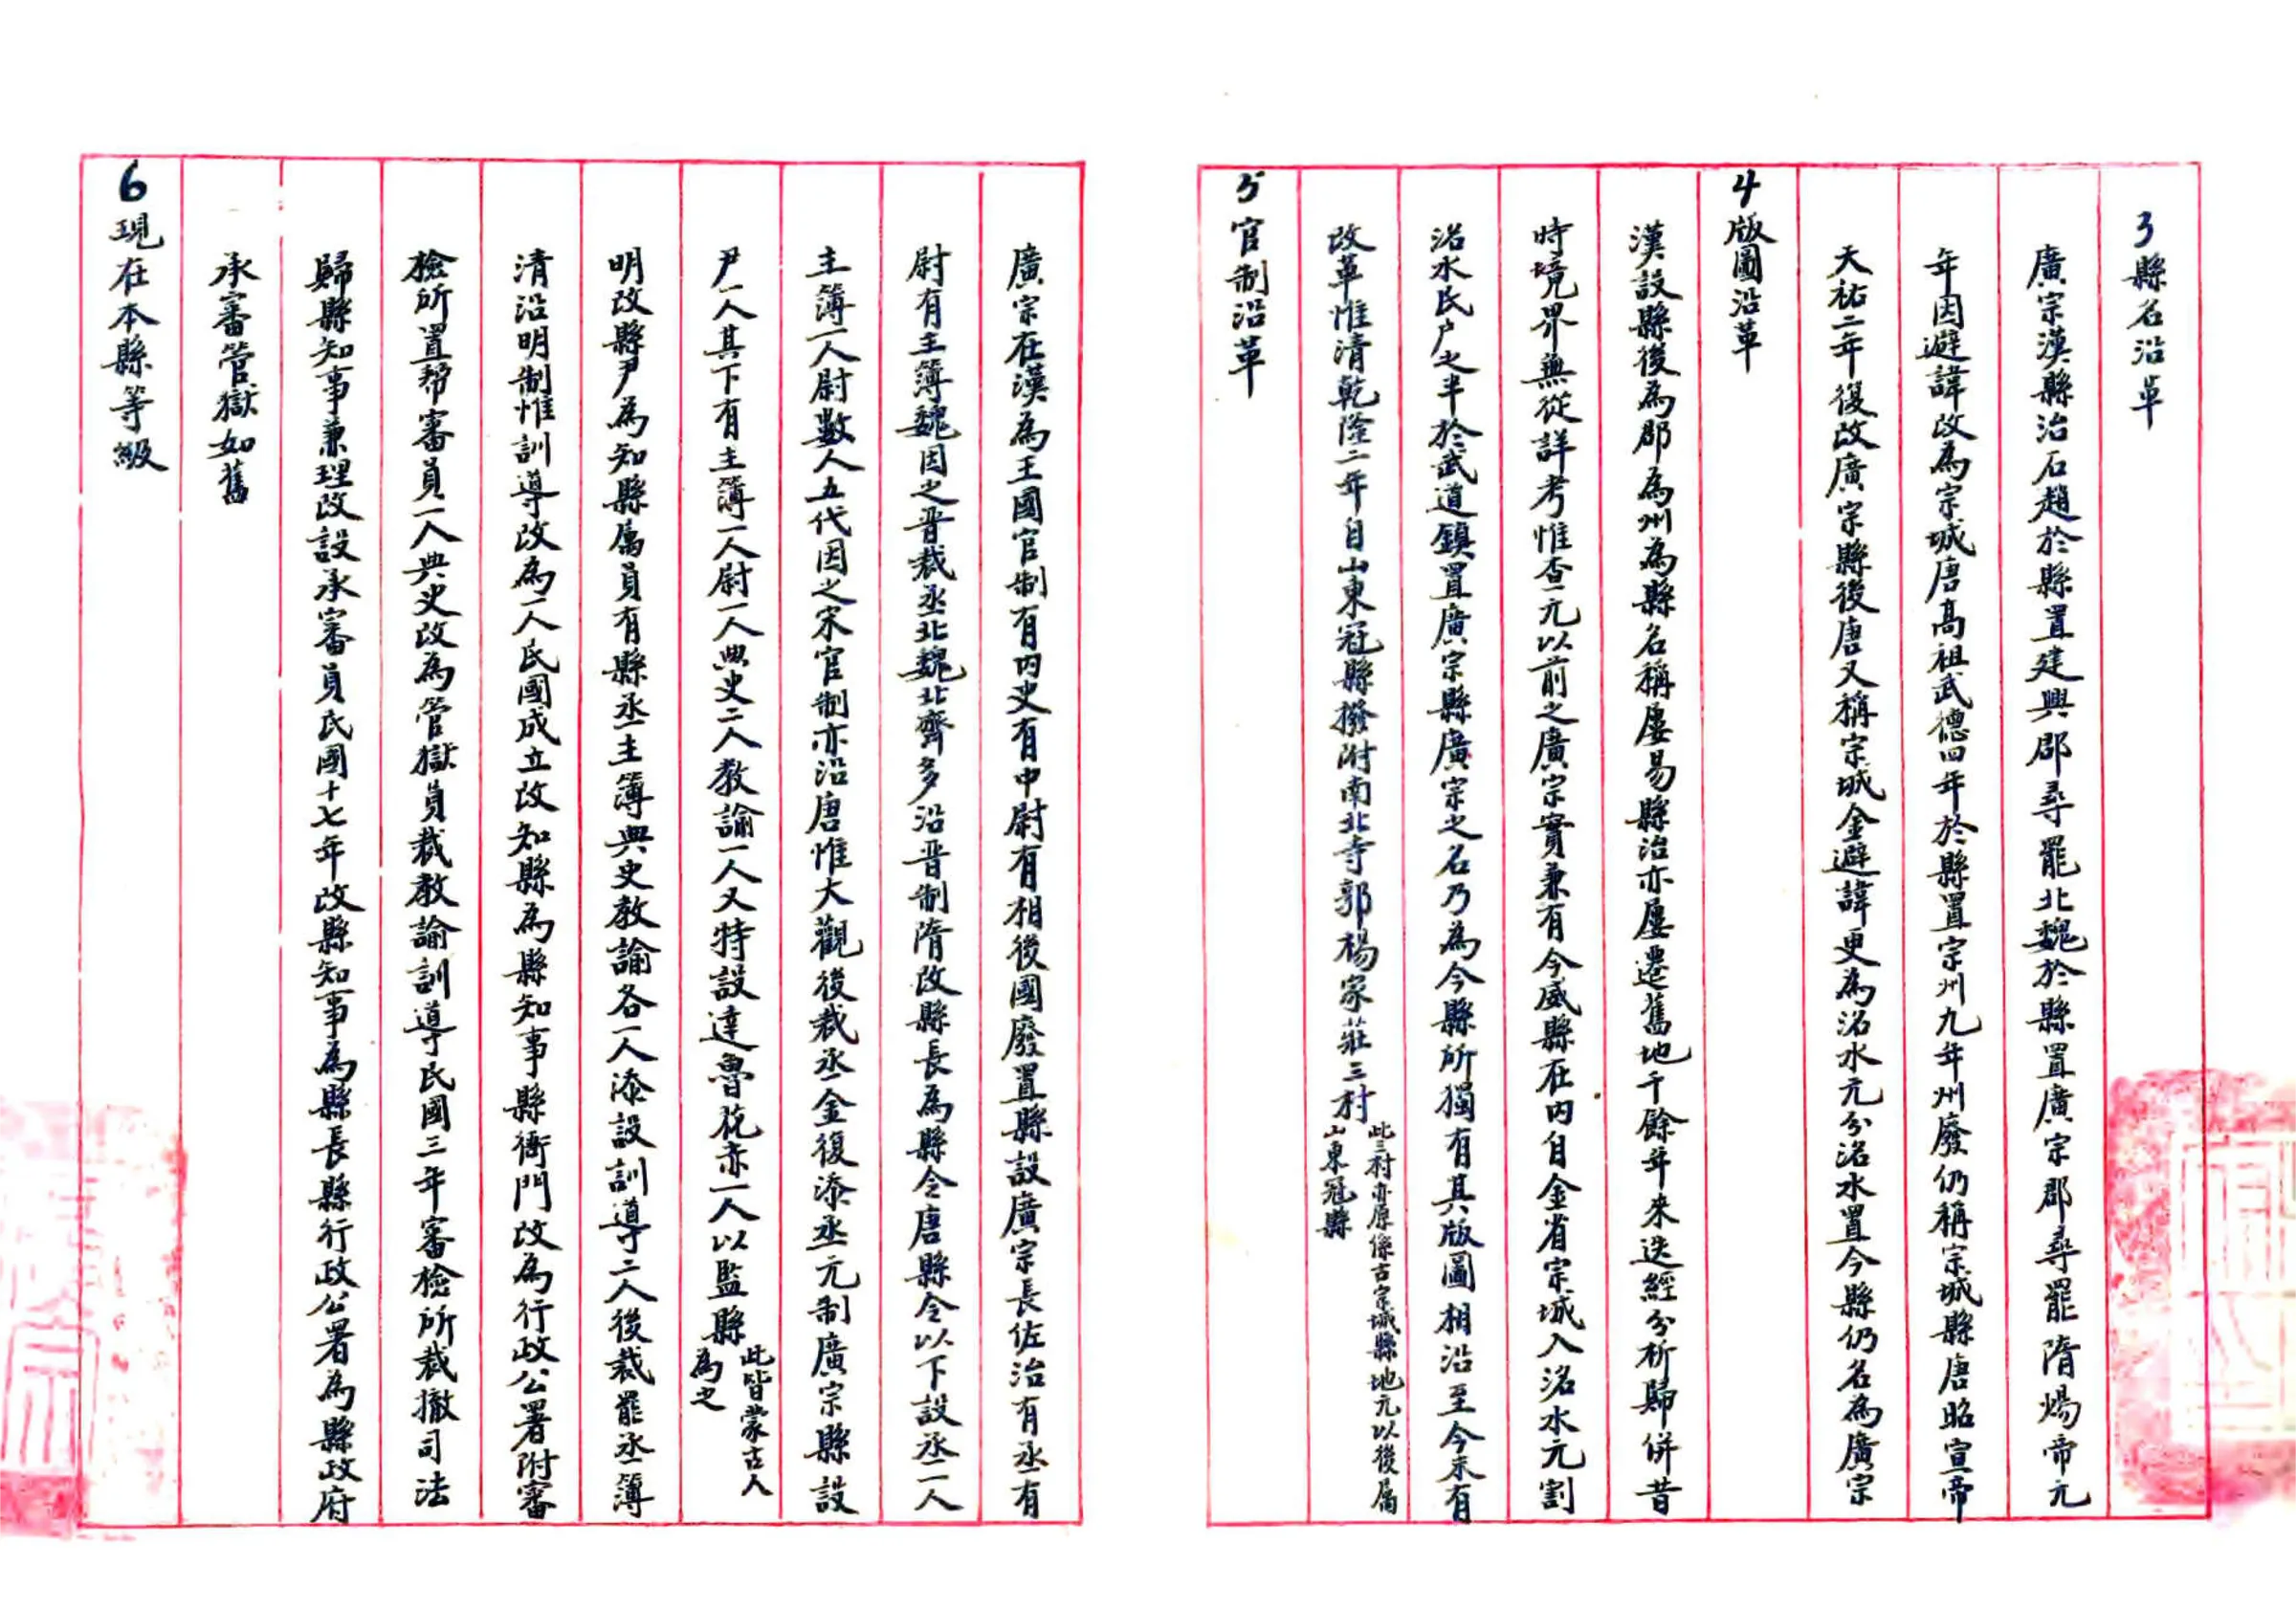 3縣名沿革
廣宗漢縣治石趙於縣置建興郡尋罷北魏於縣置廣宗郡尋罷隋煬帝元
年因避諱改為宗城唐高祖武德四年於縣置宗州九年州廢仍稱宗城縣唐昭宣帝
天祐二年復改廣宗縣後唐又稱宗城金避諱更為洺水元分洺水置今縣仍名為廣宗
4版圖沿革
漢設縣後為郡為州為縣名稱屢易縣治亦屢遷舊地千餘年來迭經分析歸併昔
時境界無從詳考惟查元以前之廣宗實兼有今威縣在內自金省宗城入洺水元割
洺水民户之半於武道鎮置廣宗縣廣宗之名乃為今縣所獨有其版圖相沿至今未有
改革惟清乾隆二年自山東冠縣撥附南北寺郭楊家莊三村
此三村亦原係古宗城縣地元以後屬
山東冠縣
5官制沿革
廣宗在漢為王國官制有內史有中尉有相後國廢置縣設廣宗長佐治有丞有
尉有主簿魏因之晉裁丞北魏北齊多沿晉制隋改縣長為縣令唐縣令以下設丞一人
主簿一人尉數人五代因之宋官制亦沿唐惟大觀後裁丞金復添丞元制廣宗縣設
尹一人其下有主簿一人尉一人典史二人教諭一人又特設達魯花赤一人以監縣
此皆蒙古人
為之
明改縣尹為知縣屬員有縣丞主簿典史教諭各一人添設訓導二人後裁罷丞簿
清沿明制惟訓導改為一人民國成立改知縣為縣知事縣衙門改為行政公署附審
檢所置帮審員一人典史改為管獄員裁教諭訓導民國三年審檢所裁撤司法
歸縣知事兼理改設承審員民國十七年改縣知事為縣長縣行政公署為縣政府
承審管獄如舊
6現在本縣等級